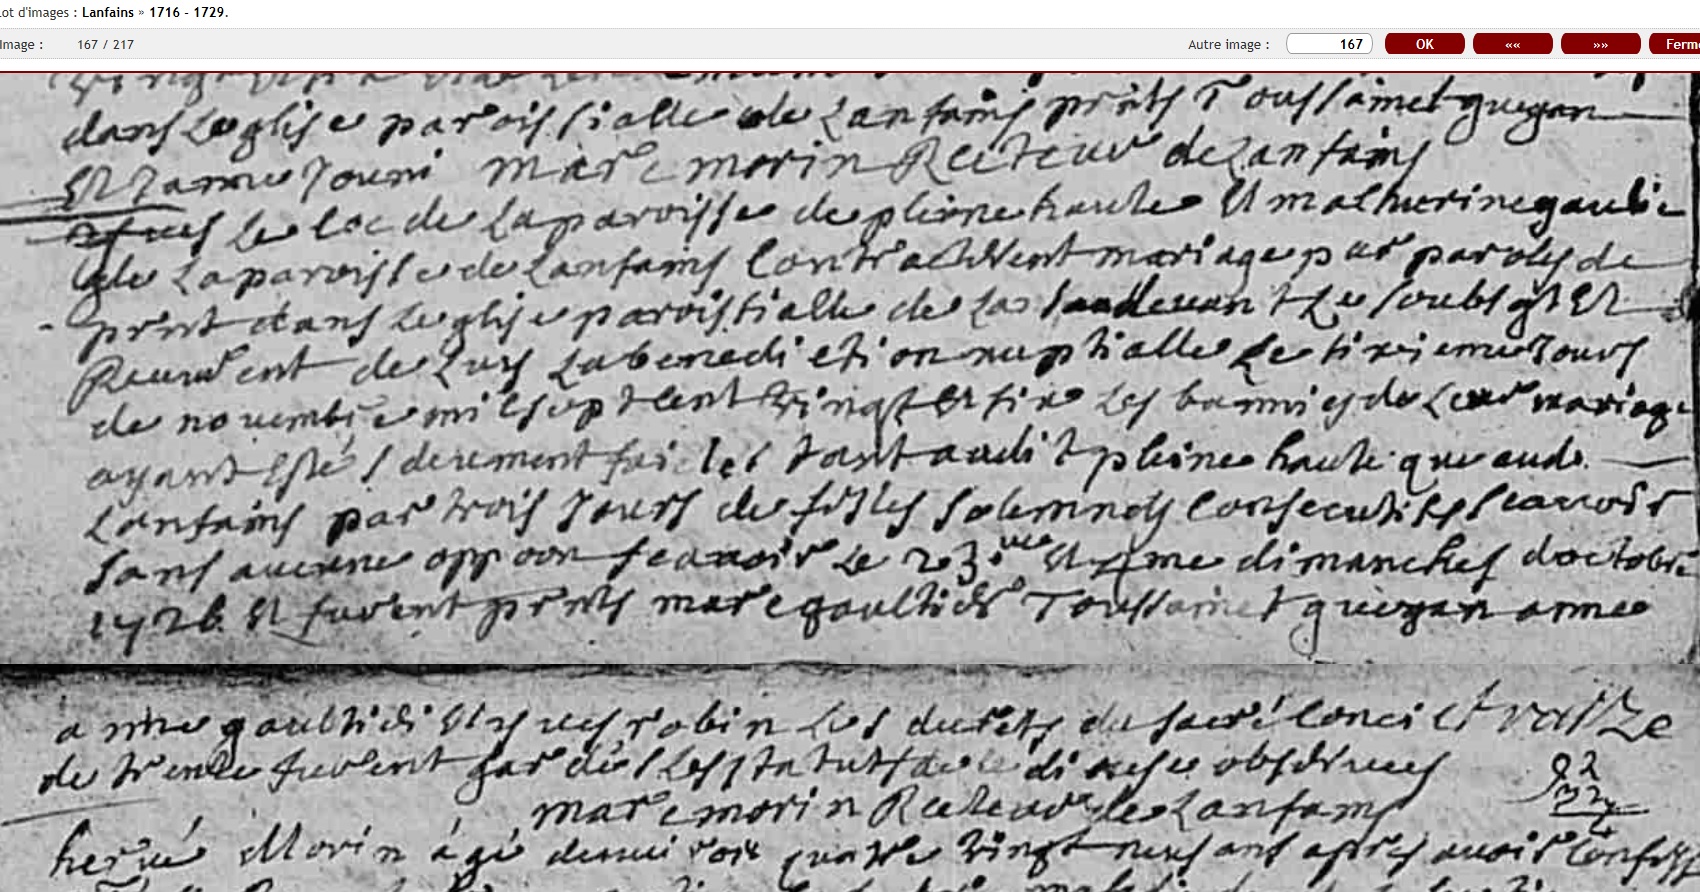 Lot d'images : Lanfains » 1716 - 1729.
Image : 167 / 217 Autre image : 167 OK «« »» Ferme
dans Leglise paroissialle de Lanfains pnts Toussainct guegan
Et Janne Jouni marc morin Recteur de Lanfains
yves Le loc de La paroisse de pleine haulte Et mathurine gaultie
de La paroisse de Lanfains Contracterent mariage par paroles de
prnt dans Leglise paroissialle de La devant Le soubsgt Et
Receurent de Luy La benediction nuptialle Le sixieme Jour
de novembre mil sept cent vingt Et six Les bannies de Leur mariage
ayant Esté faictes tant audit pleine haulte que aud.
Lanfains par trois Jours de festes solemnels Consecutifs scavoir
sans aucune oppoon scavoir Le 23ime Et 4me dimanches doctobre
1726 Et furent prnts marc gaultier Toussainct guegan anne
anne gaultier Et yves robin Les decrets du sacré Concil
de trente furent gardés Les statuts de ce diocese observees
marc morin Recteur de Lanfains
hervé Morin agé denviron quatre vingt neuf ans apres avoir Confesse